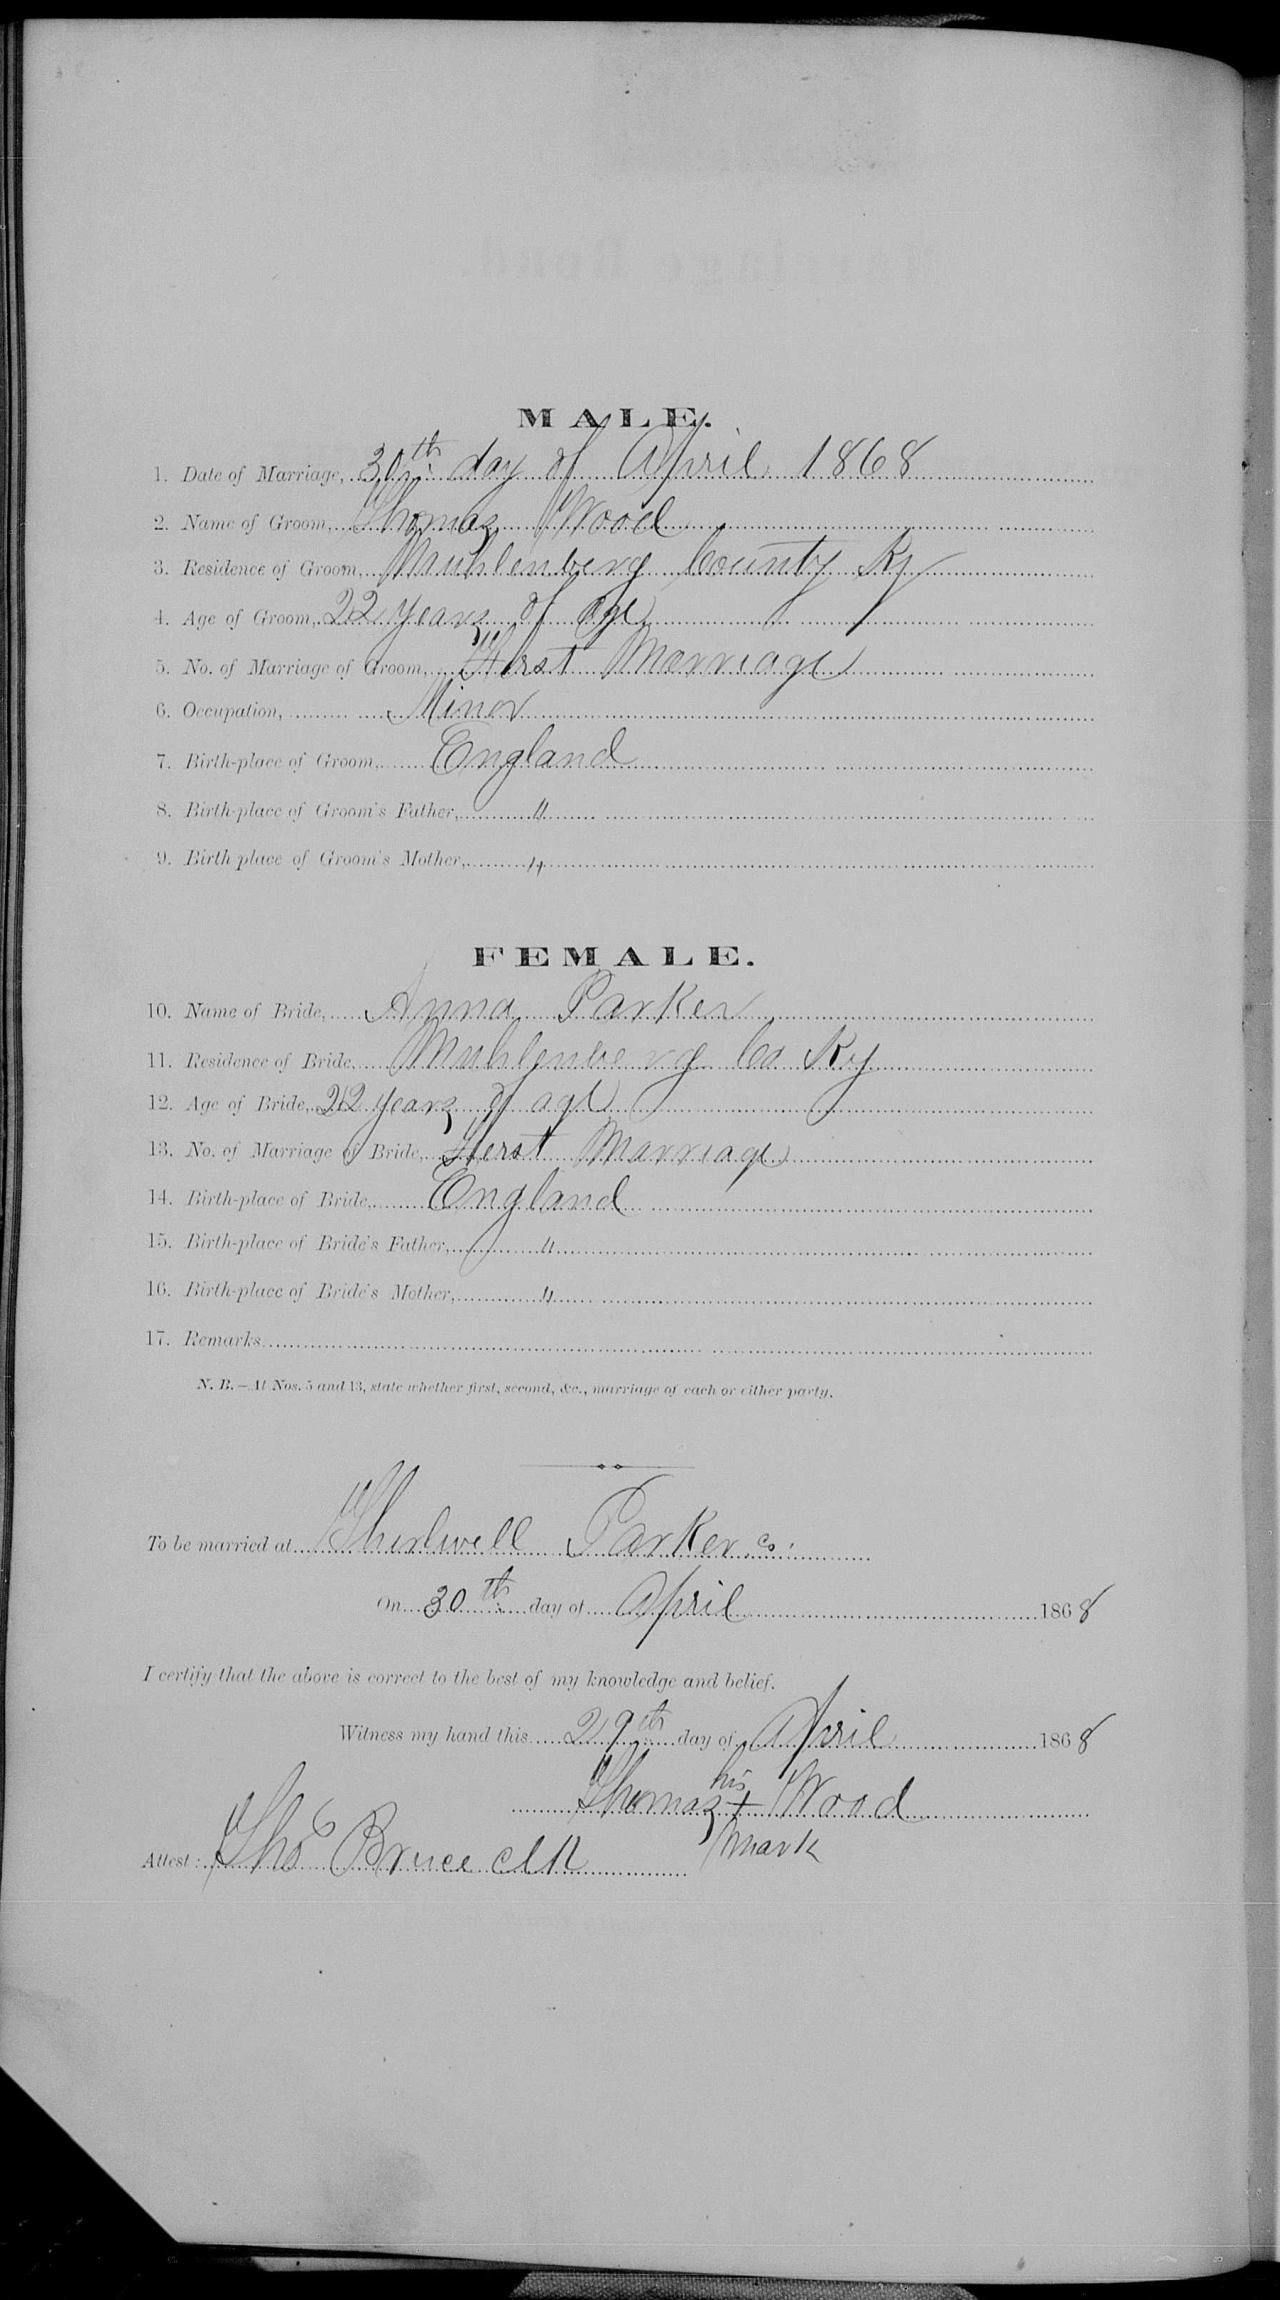 MALE.
1. Date of Marriage, 30th day of April 1868
2. Name of Groom, Thomas Wood
3. Residence of Groom, Muhlenberg County Ky
4. Age of Groom, 22 years of age
5. No. of Marriage of Groom, First Marriage
6. Occupation, Minor
7. Birth-place of Groom, England
8. Birth-place of Groom's Father, "
9. Birth place of Groom's Mother, "
FEMALE.
10. Name of Bride, Anna Parker
11. Residence of Bride, Muhlenberg Co Ky
12. Age of Bride, 22 years of age
13. No. of Marriage of Bride, First Marriage
14. Birth-place of Bride, England
15. Birth-place of Bride's Father, "
16. Birth-place of Bride's Mother, "
17. Remarks
N. B.—At Nos. 5 and 13, state whether first, second, &c., marriage of each or either party.
To be married at Parker
On 30th day of April 1868
I certify that the above is correct to the best of my knowledge and belief.
Witness my hand this 29th day of April 1868
Thomas his + Wood
mark
Attest: Tho Bruce clk